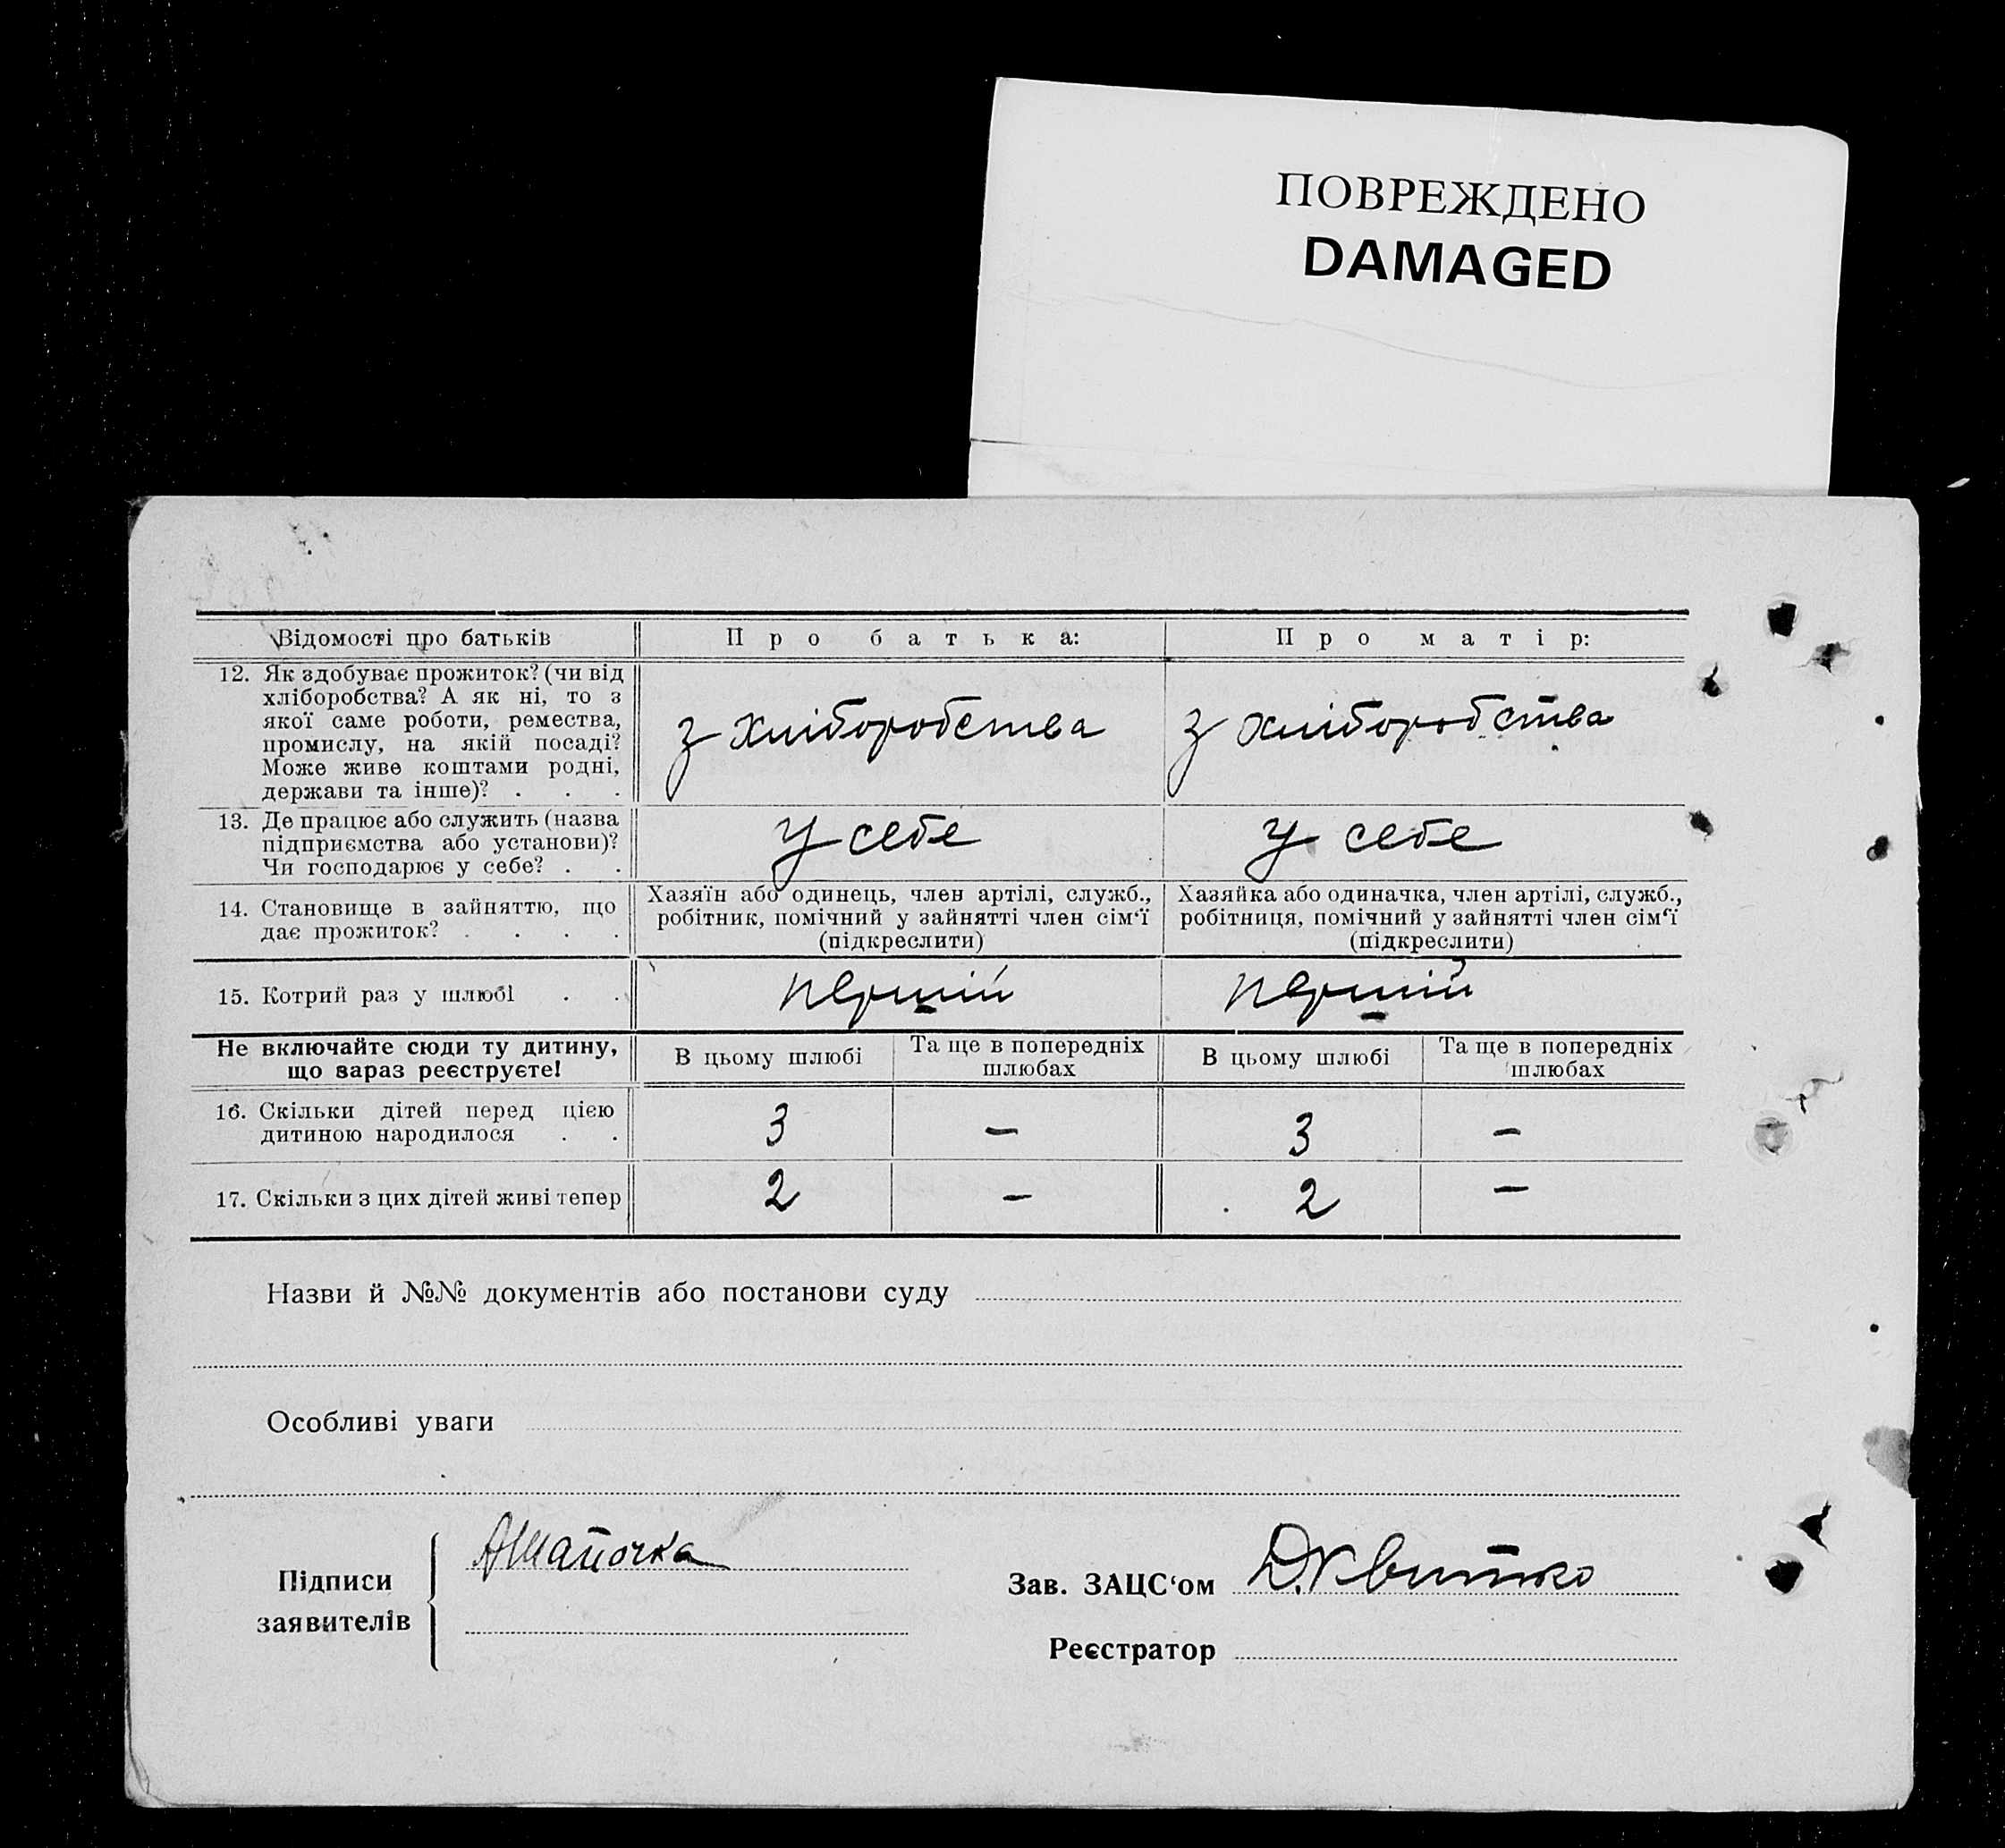 ПОВРЕЖДЕНО
DAMAGED
Відомості про батьків
Про батька:
Про матір:
12. Як здобуває прожиток? (чи від
хліборобства? А як ні, то з
якої саме роботи, ремества,
промислу, на якій посаді?
Може живе коштами родні,
держави та інше)? . . .
з хліборобства
з хліборобства
13. Де працює або служить (назва
підприємства або установи)?
Чи господарює у себе? . .
у себе
у себе
14. Становище в зайняттю, що
дає прожиток? . . . .
Хазяїн або одинець, член артілі, служб.,
робітник, помічний у зайнятті член сім‘ї
(підкреслити)
Хазяйка або одиначка, член артілі, служб.,
робітниця, помічний у зайнятті член сім‘ї
(підкреслити)
15. Котрий раз у шлюбі . .
перший
перший
Не включайте сюди ту дитину,
що зараз реєструєте!
В цьому шлюбі
Та ще в попередніх
шлюбах
В цьому шлюбі
Та ще в попередніх
шлюбах
16. Скільки дітей перед цією
дитиною народилося . .
3
–
3
–
17. Скільки з цих дітей живі тепер
2
–
2
–
Назви й №№ документів або постанови суду
Особливі уваги
Підписи
заявителів
АШапочка
Зав. ЗАЦС‘ом
Д.Квитко
Реєстратор